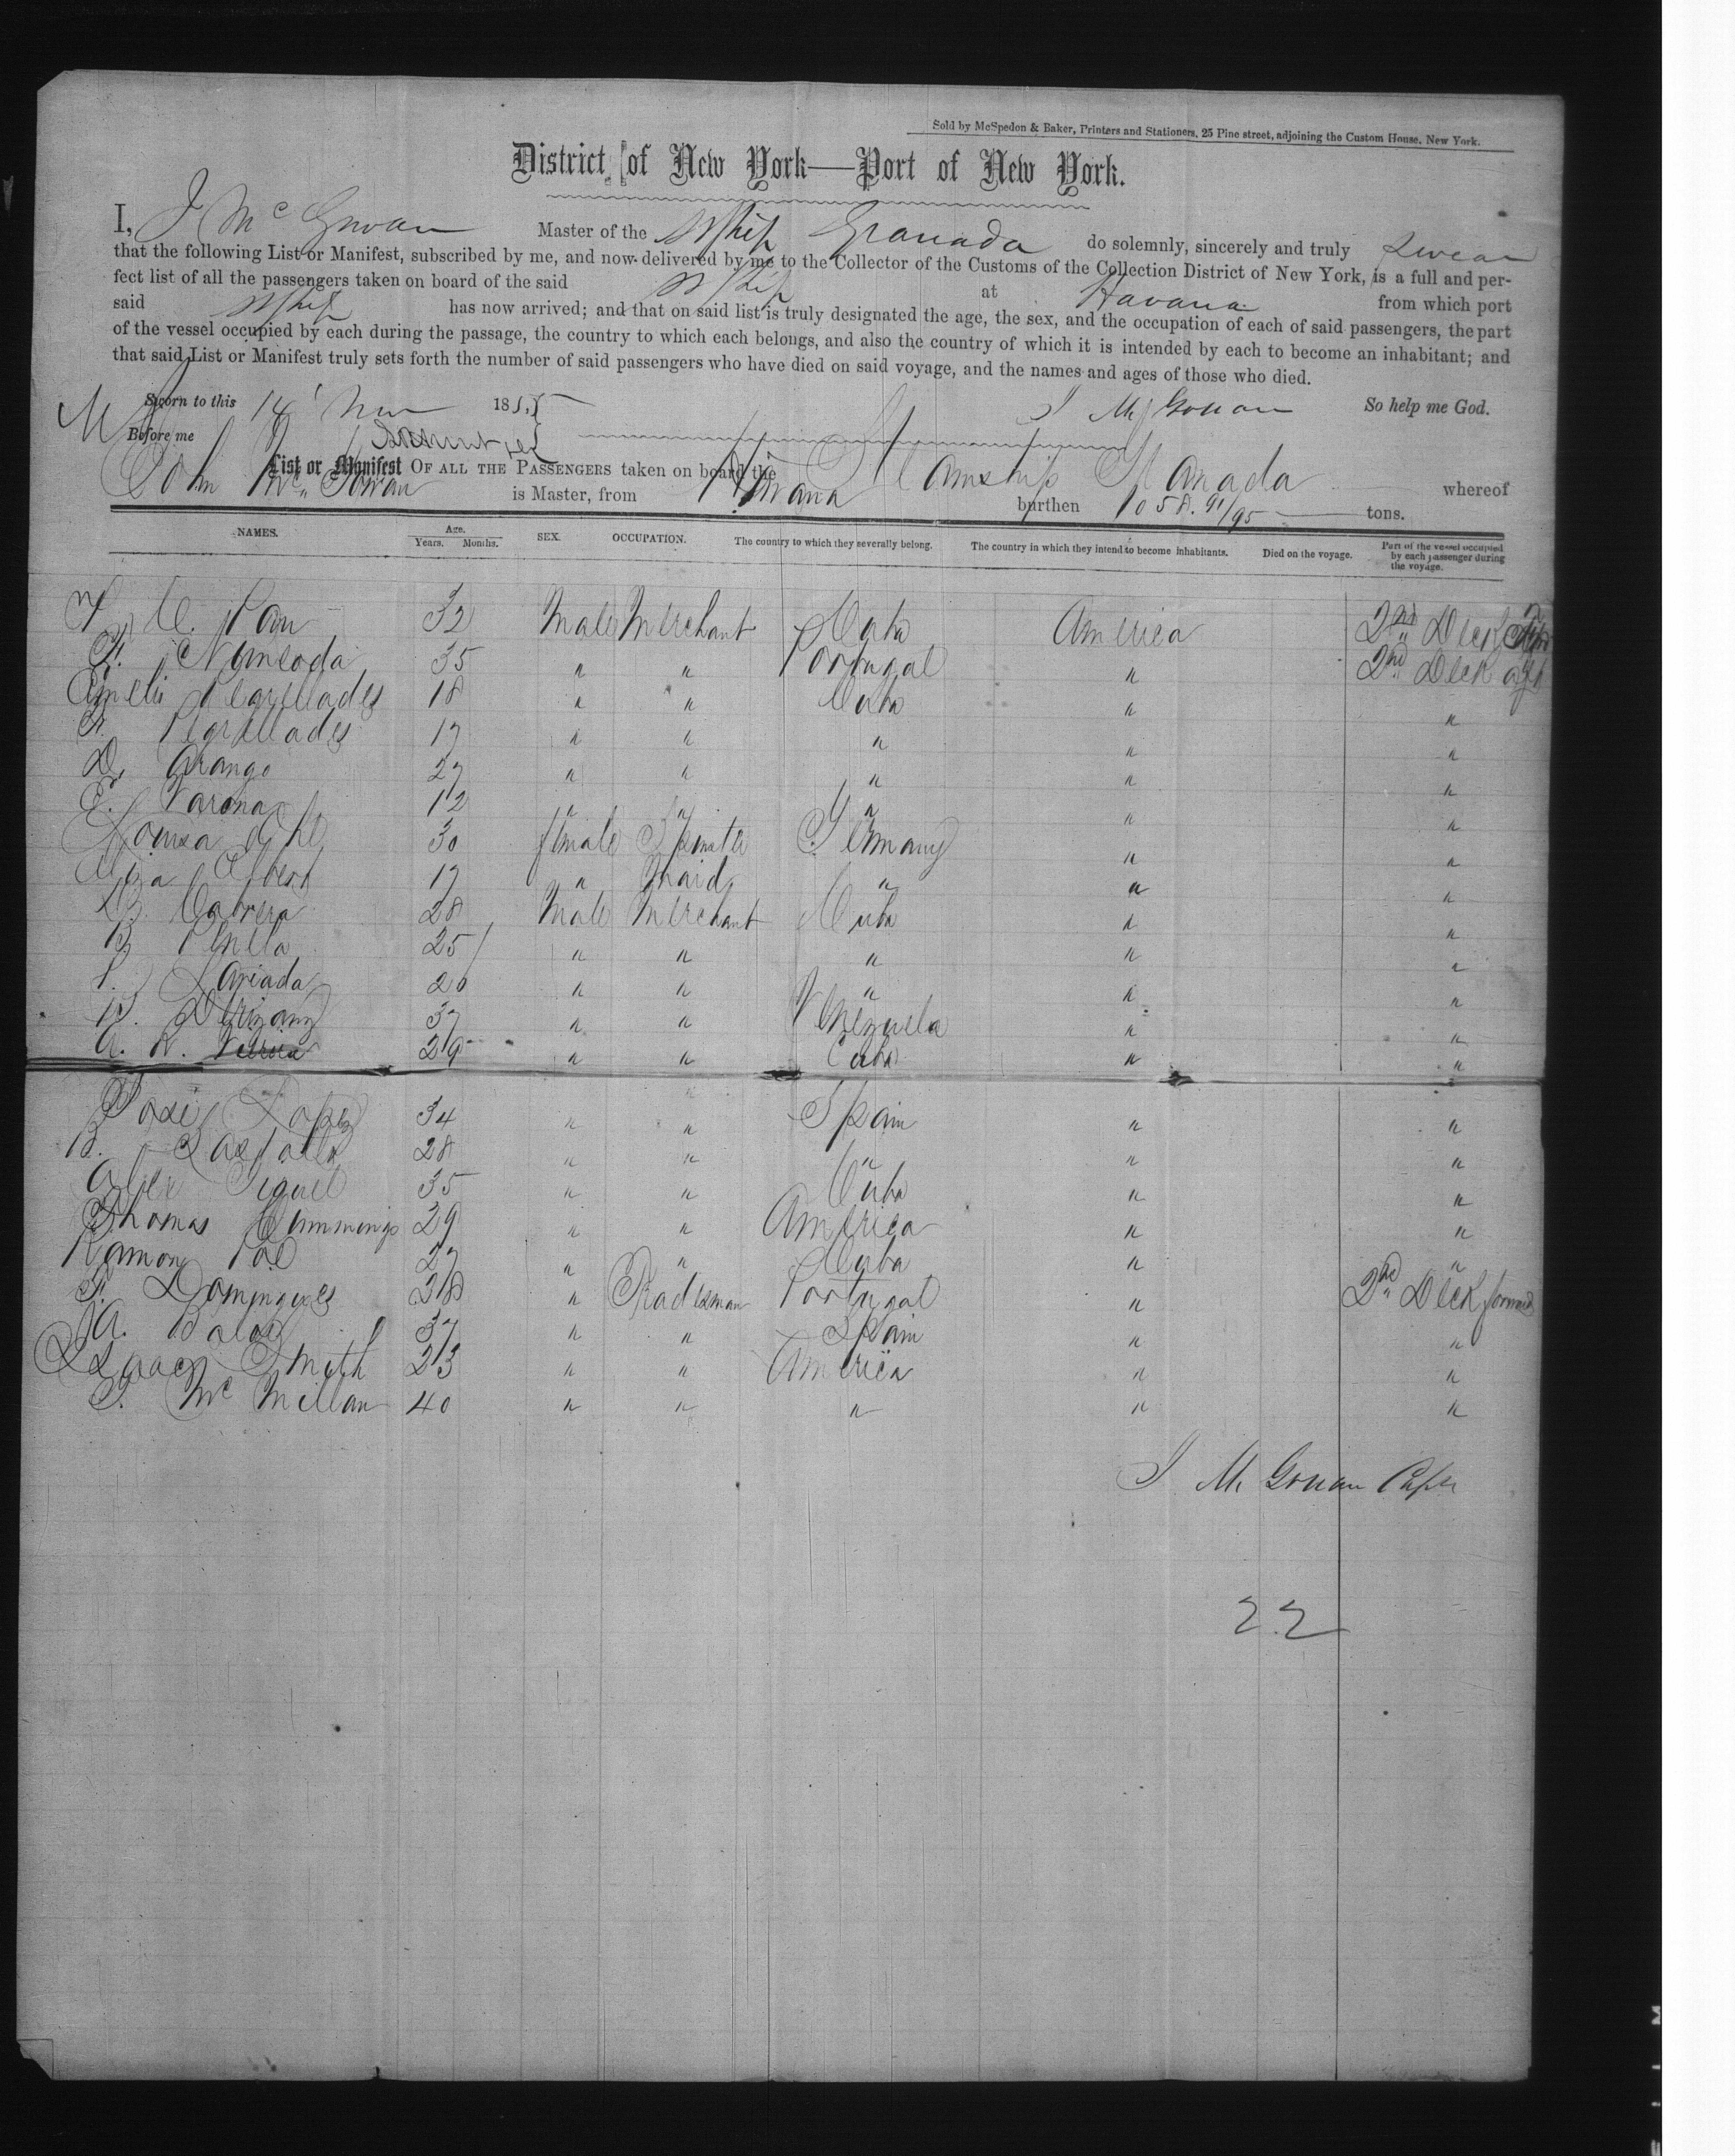 Sold by McSpedon & Baker, Printers and Stationers, 25 Pine street, adjoining the Custom House, New York.
District of New York—Port of New York.
I, J McGowan Master of the SShip Granada do solemnly, sincerely and truly swear
that the following List or Manifest, subscribed by me, and now delivered by me to the Collector of the Customs of the Collection District of New York, is a full and per-
fect list of all the passengers taken on board of the said SShip at Havana from which port
said SShip has now arrived; and that on said list is truly designated the age, the sex, and the occupation of each of said passengers, the part
of the vessel occupied by each during the passage, the country to which each belongs, and also the country of which it is intended by each to become an inhabitant; and
that said List or Manifest truly sets forth the number of said passengers who have died on said voyage, and the names and ages of those who died.
Sworn to this 14 185 J McGowan So help me God.
Before me
List or Manifest OF ALL THE PASSENGERS taken on board the Steamship Granada whereof
John McGowan is Master, from Havana burthen 1058. 91/95 tons.
NAMES. Age. Years. Months. SEX. OCCUPATION. The country to which they severally belong. The country in which they intend to become inhabitants. Died on the voyage. Part of the vessel occupied by each passenger during the voyage.
32 Male Merchant Cuba America 2nd Deck
35 " " Portugal " 2nd Deck aft
18 " " Cuba " "
17 " " " " "
D. Arango 27 " " " " "
E. Varona 12 " " " " "
Louisa 30 female Spinster Germany " "
Albert 17 " Maid " " "
Cabrera 28 Male Merchant Cuba " "
25 " " " " "
26 " " " " "
37 " " Venezuela " "
A. R. 29 " " Cuba " "
Jose Lopez 34 " " Spain " "
B. 28 " " " " "
Alex 35 " " Cuba " "
Thomas Cummings 29 " " America " "
Ramon 27 " " Cuba " "
F. Domingues 28 " Tradesman Portugal " 2nd Deck forward
37 " " Spain " "
Isaac Smith 23 " " America " "
McMillan 40 " " " " "
J McGowan
22